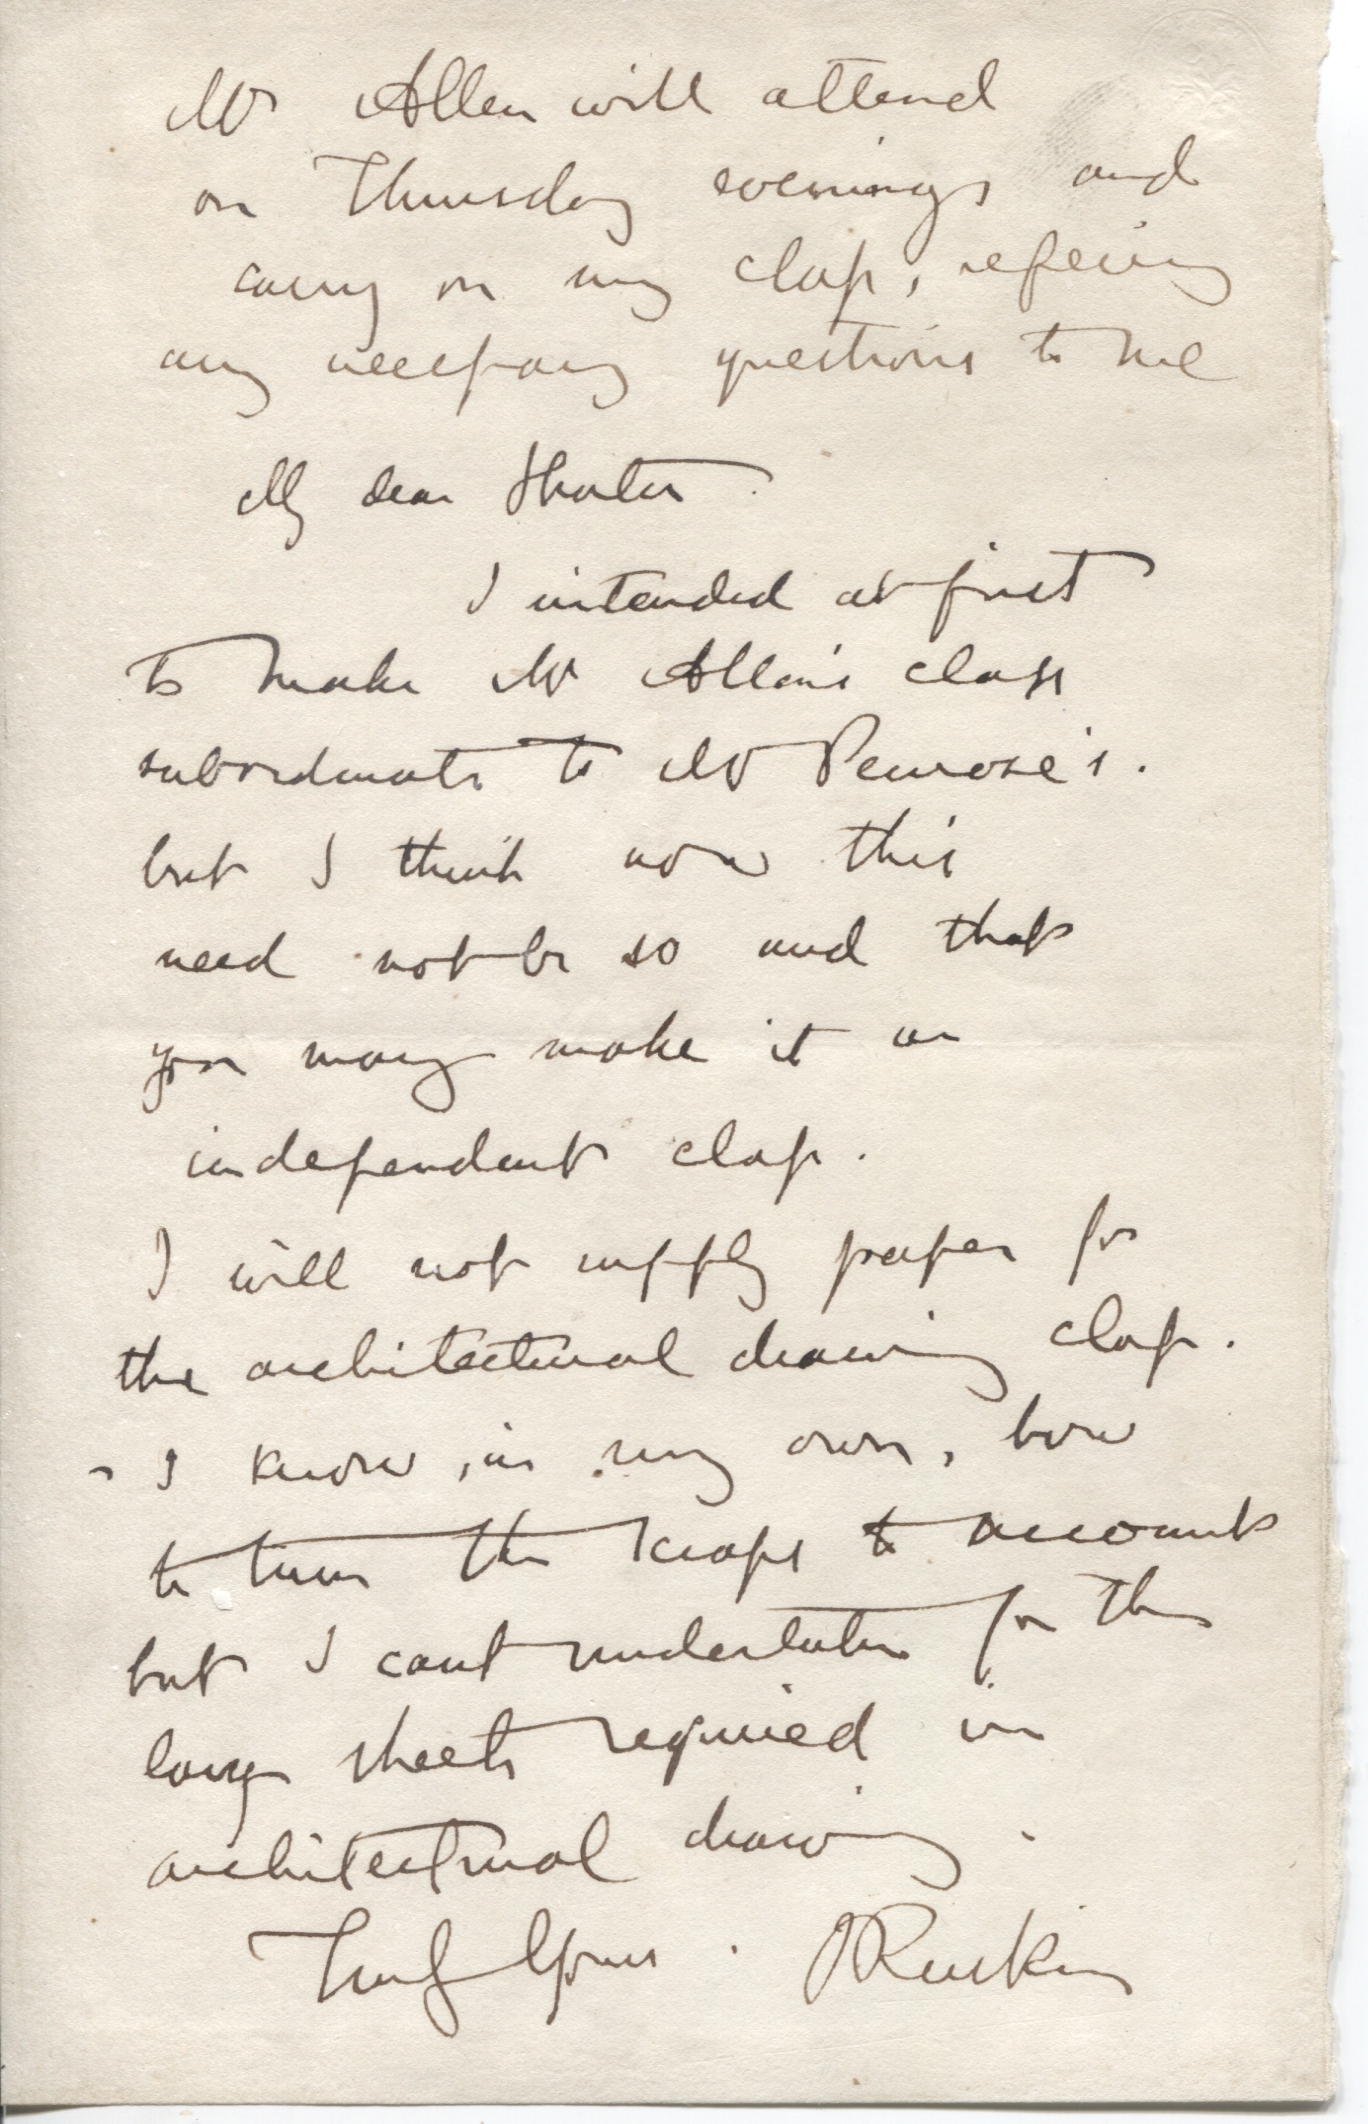 Mr Allen will attend
on Thursday evenings and
carry on my class, refering
any necessary questions to me
My dear Shorter
I intended at first
to make Mr Allen's class
subordinate to Mr Penrose's.
but I think now this
need not be so and that
you may make it an
independent class.
I will not supply paper for
the architectural drawing class.
- I know, in my own, how
to turn the scraps to account
but I cant undertake for the
large sheets required in
architectural drawing.
Truly Yours. J Ruskin